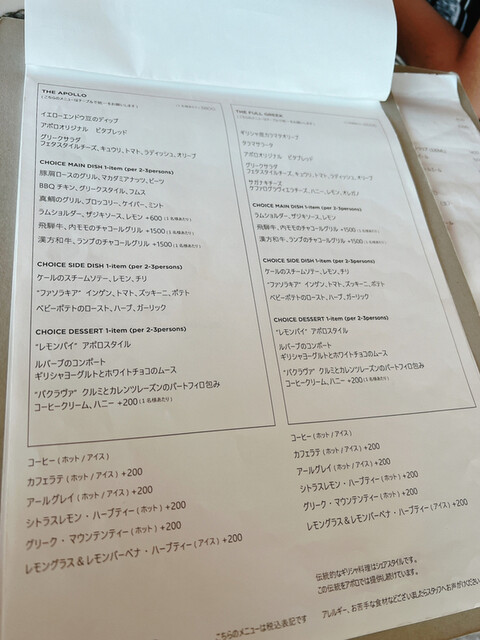 THE APOLLO
イエローエンドウ豆のディップ
アポロオリジナル ピタブレッド
グリークサラダ
フェタスタイルチーズ、キュウリ、トマト、ラディッシュ、オリーブ
CHOICE MAIN DISH 1-item (per 2-3persons)
豚肩ロースのグリル、マカダミアナッツ、ビーツ
BBQ チキン、グリークスタイル、フムス
真鯛のグリル、ブロッコリー、ケイパー、ミント
ラムショルダー、ザジキソース、レモン +600 (1名様あたり)
飛騨牛、内モモのチャコールグリル +1500 (1名様あたり)
漢方和牛、ランプのチャコールグリル +1500 (1名様あたり)
CHOICE SIDE DISH 1-item (per 2-3persons)
ケールのスチームソテー、レモン、チリ
"ファソラキア" インゲン、トマト、ズッキーニ、ポテト
ベビーポテトのロースト、ハーブ、ガーリック
CHOICE DESSERT 1-item (per 2-3persons)
"レモンパイ" アポロスタイル
ルバーブのコンポート
ギリシャヨーグルトとホワイトチョコのムース
"バクラヴァ" クルミとカレンツレーズンのパートフィロ包み
コーヒークリーム、ハニー +200 (1名様あたり)
コーヒー (ホット/アイス)
カフェラテ (ホット/アイス) +200
アールグレイ (ホット/アイス) +200
シトラスレモン・ハーブティー (ホット) +200
グリーク・マウンテンティー (ホット) +200
レモングラス&レモンバーベナ・ハーブティー (アイス) +200
THE FULL GREEK
ギリシャ産カラマタオリーブ
タラマサラータ
アポロオリジナル ピタブレッド
グリークサラダ
フェタスタイルチーズ、キュウリ、トマト、ラディッシュ、オリーブ
サガナキチーズ
ケファログラヴィエラチーズ、ハニー、レモン、オレガノ
CHOICE MAIN DISH 1-item (per 2-3persons)
ラムショルダー、ザジキソース、レモン
飛騨牛、内モモのチャコールグリル +1500 (1名様あたり)
漢方和牛、ランプのチャコールグリル +1500 (1名様あたり)
CHOICE SIDE DISH 1-item (per 2-3persons)
ケールのスチームソテー、レモン、チリ
"ファソラキア" インゲン、トマト、ズッキーニ、ポテト
ベビーポテトのロースト、ハーブ、ガーリック
CHOICE DESSERT 1-item (per 2-3persons)
"レモンパイ" アポロスタイル
ルバーブのコンポート
ギリシャヨーグルトとホワイトチョコのムース
"バクラヴァ" クルミとカレンツレーズンのパートフィロ包み
コーヒークリーム、ハニー +200 (1名様あたり)
コーヒー (ホット/アイス)
カフェラテ (ホット/アイス) +200
アールグレイ (ホット/アイス) +200
シトラスレモン・ハーブティー (ホット) +200
グリーク・マウンテンティー (ホット) +200
レモングラス&レモンバーベナ・ハーブティー (アイス) +200
伝統的なギリシャ料理はシェアスタイルです。
この伝統をアポロでは提供し続けています。
アレルギー、お苦手な食材などございましたらスタッフへお声がけください
こちらのメニューは税込表記です